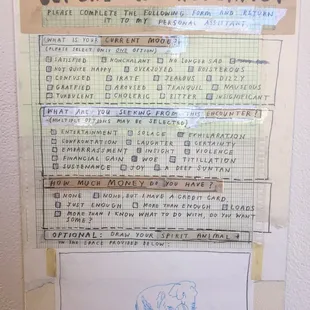 PLEASE COMPLETE THE FOLLOWING FORM AND RETURN
IT TO MY PERSONAL ASSISTANT.
WHAT IS YOUR CURRENT MOOD?
(PLEASE SELECT ONLY ONE OPTION)
SATISFIED NONCHALANT NO LONGER SAD
NOT QUITE HAPPY OVERJOYED BOISTEROUS
CONFUSED IRATE JEALOUS DIZZY
GRATIFIED AROUSED TRANQUIL NAUSEOUS
TURBULENT CHOLERIC BITTER INSIGNIFICANT
WHAT ARE YOU SEEKING FROM THIS ENCOUNTER?
(MULTIPLE OPTIONS MAY BE SELECTED)
ENTERTAINMENT SOLACE EXHILARATION
CONFRONTATION LAUGHTER CERTAINTY
EMBARRASSMENT INSIGHT VIOLENCE
FINANCIAL GAIN WOE TITILLATION
SUBSTENANCE JOY A DEEP SUNTAN
HOW MUCH MONEY DO YOU HAVE?
NONE NONE, BUT I HAVE A CREDIT CARD
JUST ENOUGH MORE THAN ENOUGH LOADS
MORE THAN I KNOW WHAT TO DO WITH, DO YOU WANT
SOME?
OPTIONAL: DRAW YOUR SPIRIT ANIMAL
IN THE SPACE PROVIDED BELOW